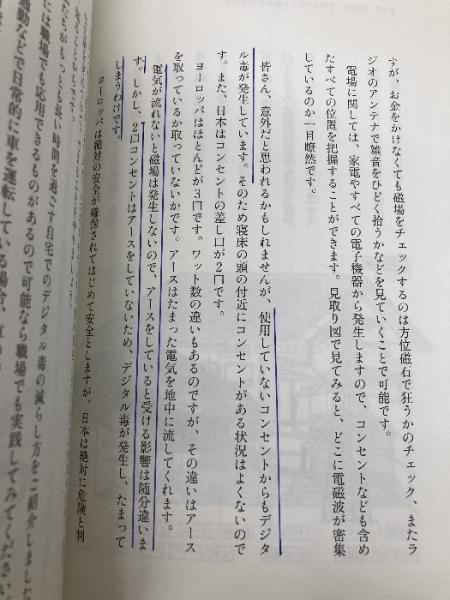 すが、お金をかけなくても磁場をチェックするのは方位磁石で狂うかのチェック、またラ
ジオのアンテナで雑音をひどく拾うかなどを見ていくことで可能です。
電場に関しては、家電やすべての電子機器から発生しますので、コンセントなども含め
たすべての位置を把握することができます。見取り図で見てみると、どこに電磁波が密集
しているのか一目瞭然です。
皆さん、意外だと思われるかもしれませんが、使用していないコンセントからもデジタ
ル毒が発生しています。そのため寝床の頭の付近にコンセントがある状況はよくないので
す。また、日本はコンセントの差し口が2口です。
ヨーロッパはほとんどが3口です。ワット数の違いもあるのですが、その違いはアース
を取っているか取っていないかです。アースはたまった電気を地中に流してくれます。
電気が流れないと磁場は発生しないので、アースをしていると受ける影響は随分違いま
す。しかし、2口コンセントはアースをしていないため、デジタル毒が発生し、たまって
しまうわけです。
ヨーロッパは絶対の安全が確保されてはじめて安全としますが、日本は絶対に危険と判
もっとも長い時間を過ごす自宅でのデジタル毒の減らし方をご紹介しました
には職場でも応用できるものがあるので可能なら職場でも実践してみてください。
通勤などで日常的に車を運転している場合、